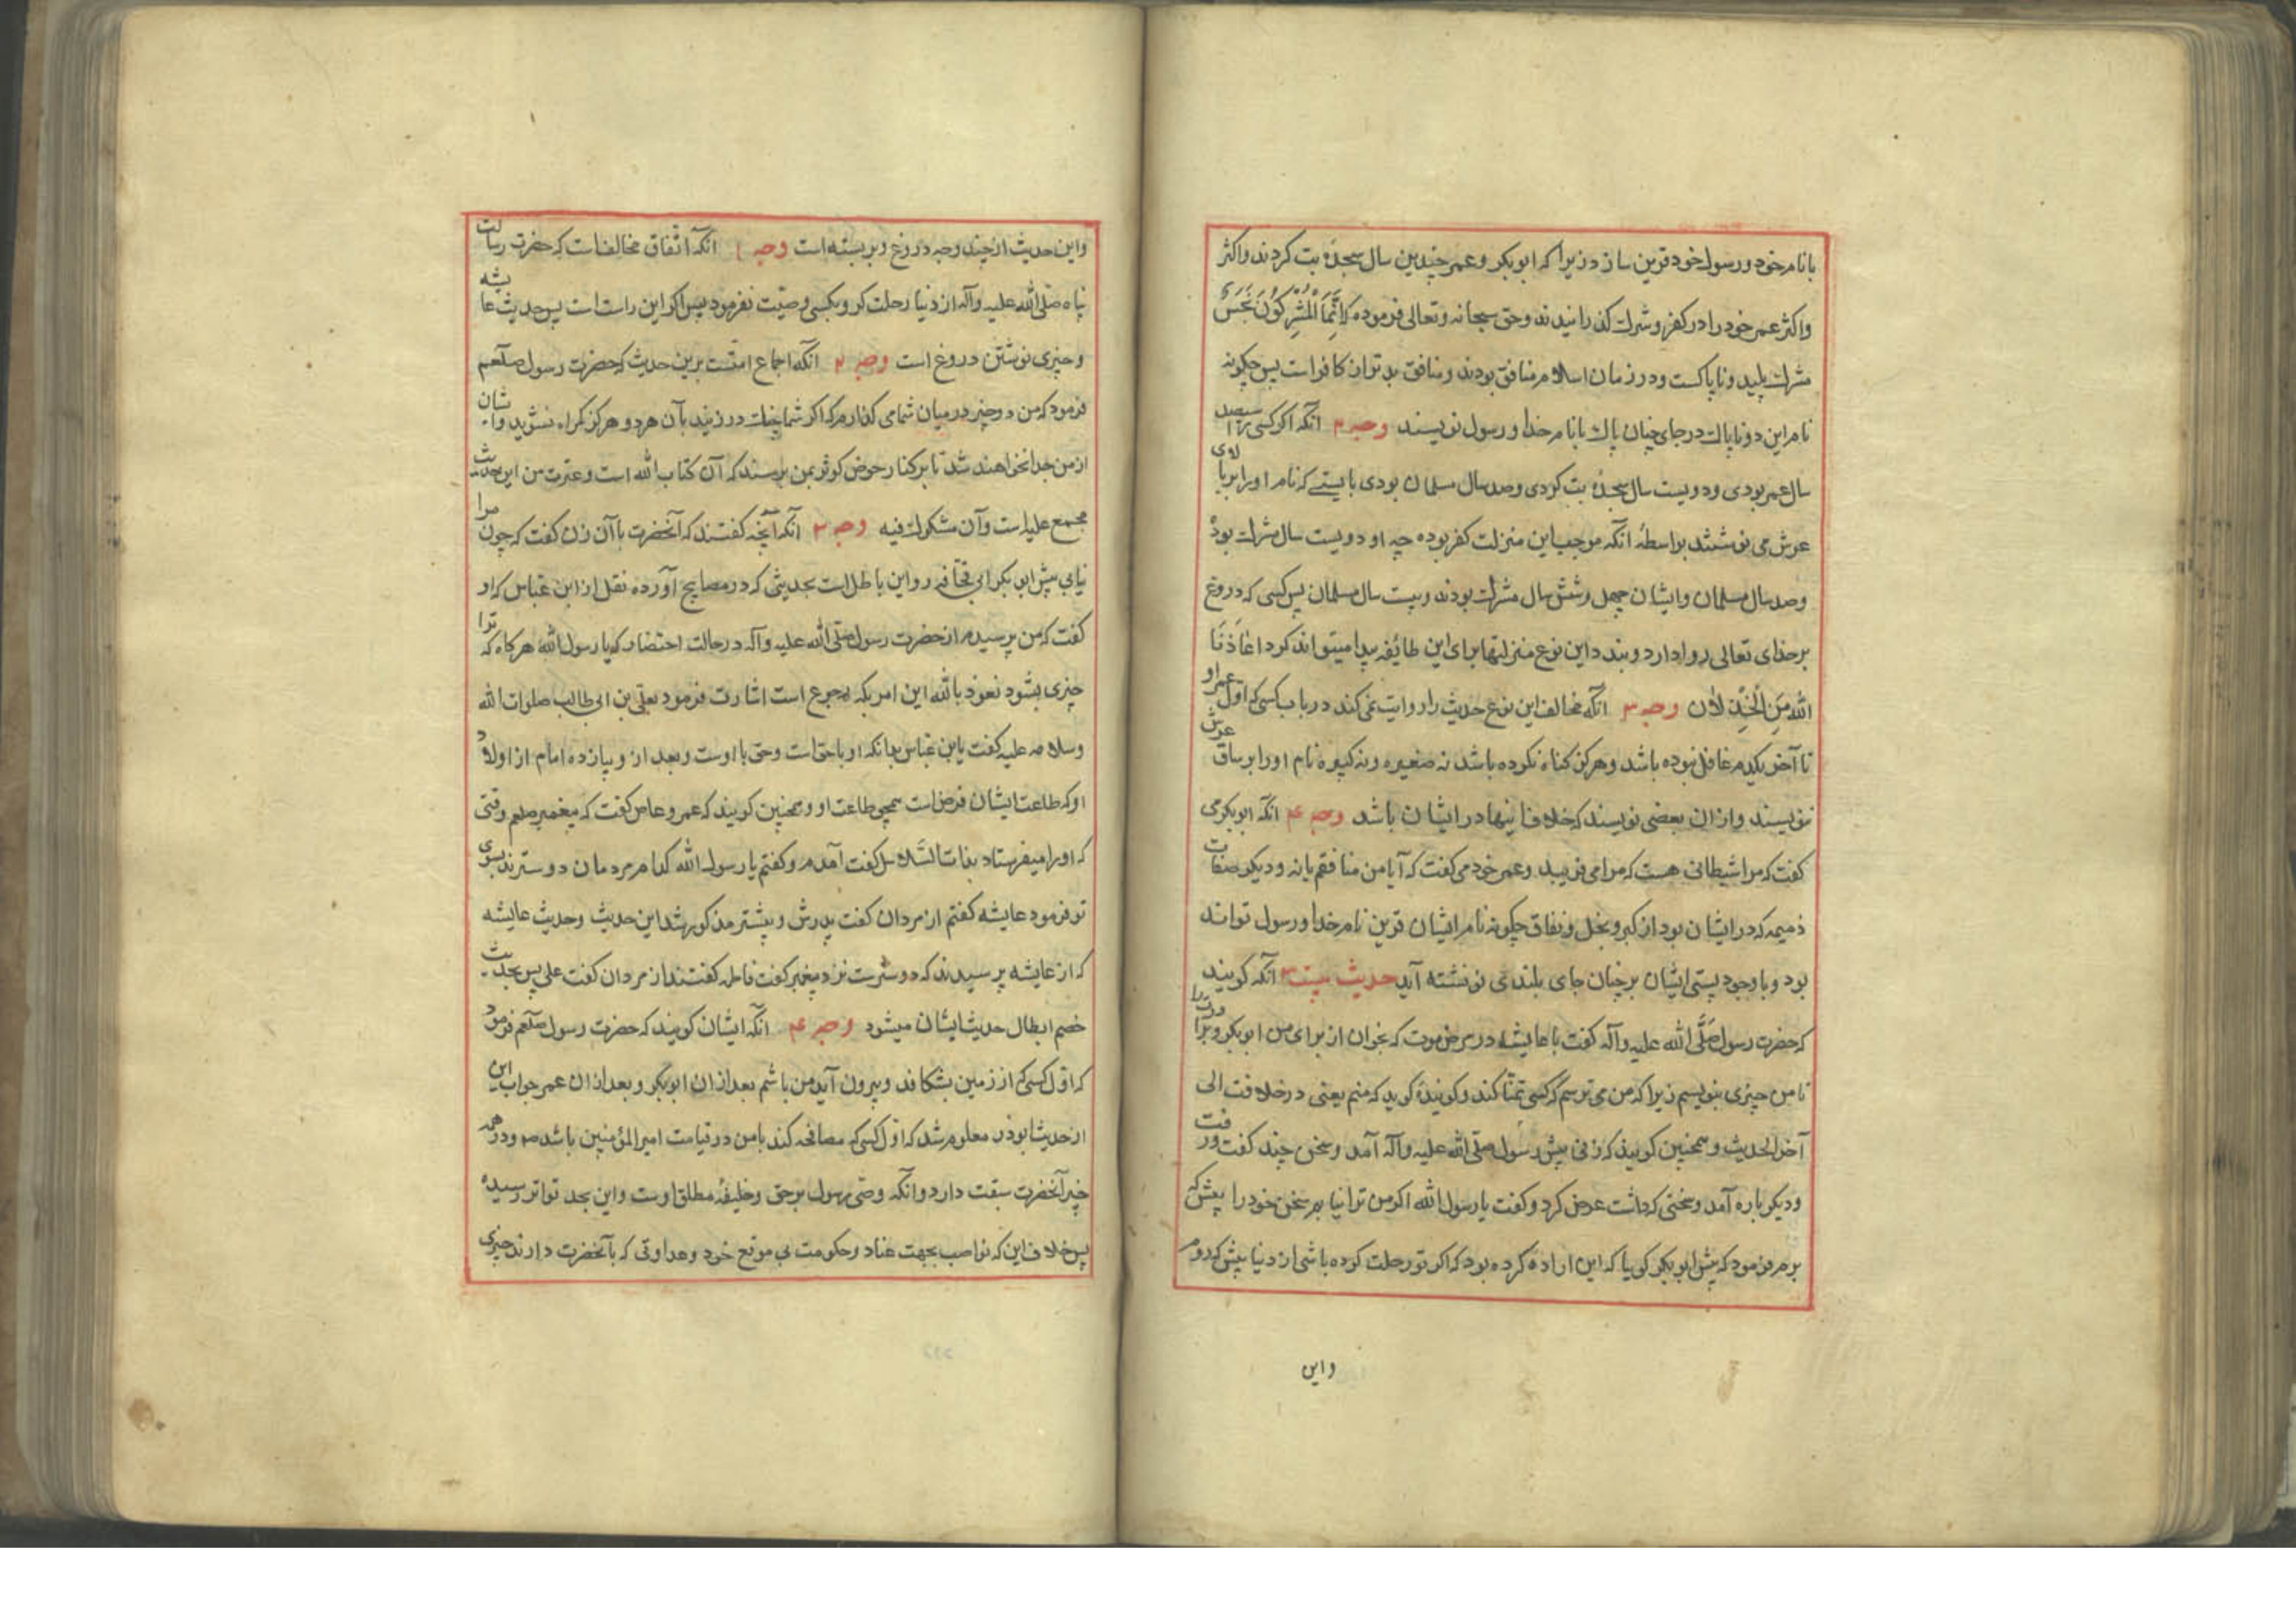 با نام خود و رسول خود قرین سازد زیرا که ابوبکر و عمر چندین سال سجدهٔ بت کردند و اکثر
و اکثر عمر خود را در کفر و شرک گذرانیدند و حق سبحانه و تعالی فرموده که اِنَّمَا الْمُشْرِکُونَ نَجَسٌ
مشرک پلید و ناپاکست و در زمان اسلام منافق بودند و منافق بدتر از کافر است پس چگونه
نام این دو ناپاک در جای چنان پاک با نام خدا و رسول نویسند وجه ۲ آنکه اگر کسی را سیصد
سال عمر بودی و دویست سال سجدهٔ بت کردی و صد سال مسلمان بودی بایستے که نام او را بر بالای
عرش می نوشتند بواسطهٔ آنکه موجب این منزلت کفر بوده چه او دویست سال مشرک بود
و صد سال مسلمان و ایشان چهل و شش سال مشرک بودند و بیست سال مسلمان پس کسی که دروغ
بر خدای تعالی روا دارد و بندد این نوع منزلتها برای این طائفه پیدا میتواند کرد اَعَاذَنَا
اللهُ مِنَ الْخِذْلَان وجه ۳ آنکه مخالف این نوع حدیث را روایت نمی کند در باب کسی که اول عمر او
تا آخر یکدم غافل نبوده باشد و هرگز گناه نکرده باشد نه صغیره و نه کبیره نام او را بر ساق عرش
ننویسند و از ان بعضی نویسند که خلاف اینها در ایشان باشد وجه ۴ آنکه ابوبکر می
گفت که مرا شیطانی هست که مرا می فریبد و عمر خود می گفت که آیا من منافقم یا نه و دیگر صفات
ذمیمه که در ایشان بود از کبر و بخل و نفاق چگونه نام ایشان قرین نام خدا و رسول تواند
بود و با وجود پستی ایشان بر چنان جای بلندی نوشته آید حدیث بیست ۳ آنکه گویند
که حضرت رسول صَلَّی الله علیه و آله گفت با عایشه در مرض موت که بخوان از برای من ابوبکر و برادرت را
تا من چیزی بنویسم زیرا که من می ترسم که کسی تمنّا کند و گویندهٔ گوید که منم یعنی در خلافت الی
آخر الحدیث و همچنین گویند که زنی پیش رسول صلّی الله علیه و آله آمد و سخن چند گفت و رفت
و دیگر باره آمد و سخنی که داشت عرض کرد و گفت یا رسول الله اگر من ترا نیابم سخن خود را پیش که
برم فرمود که پیش ابوبکر گویا که این اراده کرده بود که اگر تو رحلت کرده باشی از دنیا پیش که روم
و این
و این حدیث از چند وجه دروغ و بربسته است وجه ۱ آنکه اتّفاق مخالفات که حضرت رسالت
پناه صلّی الله علیه و آله از دنیا رحلت کرد و بکسی وصیّت نفرمود پس اگر این راست است پس حدیث عایشه
و چیزی نوشتن دروغ است وجه ۲ آنکه اجماع امّتست برین حدیث که حضرت رسول صلعم
فرمود که من دو چیز در میان شما می گذارم که اگر شما چنگ در زنید بآن هر دو هرگز گمراه نشوید و ایشان
از من جدا نخواهند شد تا بر کنار حوض کوثر بمن برسند که آن کتاب الله است و عترت من این حدیث
مجمع علیه است و آن مشکوک فیه وجه ۳ آنکه آنچه گفتند که آنحضرت با آن زن گفت که چون مرا
نیابی پیش ابوبکر ابی قحافه رو این باطل است بحدیثی که در مصابیح آورده نقل از ابن عبّاس که او
گفت که من پرسیدم از حضرت رسول صلّی الله علیه و آله در حالت احتضار که یا رسول الله هرگاه که ترا
چیزی بشود نعوذ بالله این امر بکه مرجوع است اشارت فرمود بعلی بن ابی طالب صلوات الله
و سلامه علیه گفت یابن عباس بدانکه او با حق است و حق با اوست و بعد از و یازده امام از اولاد
او که طاعت ایشان فرض است همچو طاعت او و همچنین گویند که عمرو عاص گفت که پیغمبر صلعم وقتی
که او را میفرستاد بذات السّلاسل گفت آمدم و گفتم یا رسول الله کدام مردمان دوسترند بسوی
تو فرمود عایشه گفتم از مردان گفت پدرش و پیشتر مذکور شد این حدیث و حدیث عایشه
که از عایشه پرسیدند که دوسترست نزد پیغمبر گفت فاطمه گفتند از مردان گفت علی پس بحدیث
خصم ابطال حدیث ایشان میشود وجه ۴ آنکه ایشان گویند که حضرت رسول صلعم فرمود
که اوّل کسی که از زمین بشکافد و بیرون آید من باشم بعد از ان ابوبکر و بعد از ان عمر جواب این
از حدیث ابوذر معلوم شد که اوّل کسی که مصافحه کند با من در قیامت امیر المؤمنین باشد و در همه
چیز آنحضرت سبقت دارد و آنکه وصّی رسول بر حق و خلیفهٔ مطلق اوست و این بحد تواتر رسیده
پس خلاف این که نواصب بجهت عناد و حکومت بی موقع خود و عداوتی که با آنحضرت دارند چیزی